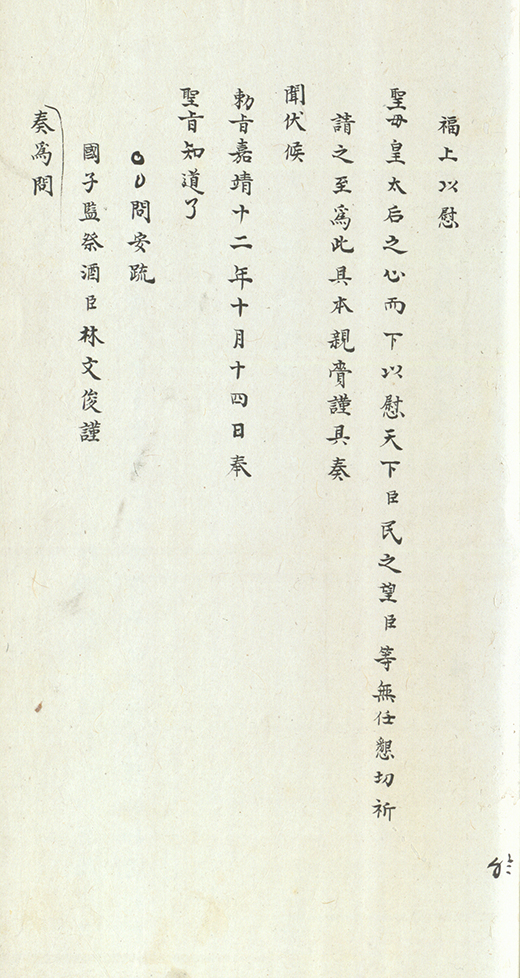 福上以慰
聖母皇太后之心而下以慰天下臣民之望臣等無任懇切祈
請之至爲此具本親賫謹具奏
聞伏候
勅旨嘉靖十二年十月十四日奉
聖旨知道了
問安疏
國子監祭酒臣林文俊謹
奏爲問